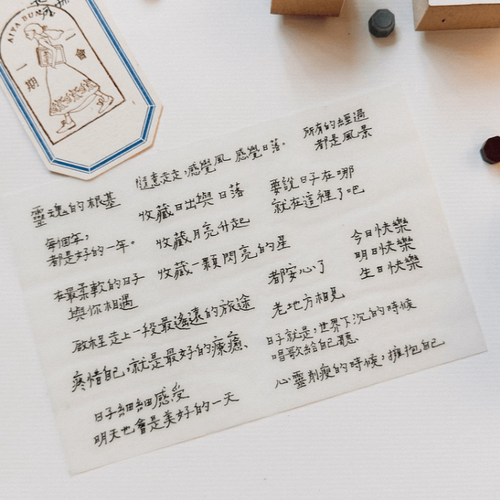 AIYA BUN
一期一會
靈魂的根基
隨意走走,感覺風,感覺日落。
所有的經過
都是風景
每個年,
都是好的一年。
收藏日出與日落
收藏月亮升起
收藏一顆閃亮的星
要說日子在哪
就在這裡了吧
在最柔軟的日子
與你相遇
都安心了
老地方相見
今日快樂
明日快樂
生日快樂
啟程走上一段最遙遠的旅途
疼惜自己,就是最好的療癒、
日子就是,世界下沉的時候
唱歌給自己聽、
日子細細感受
明天也會是美好的一天
心靈消瘦的時候,擁抱自己